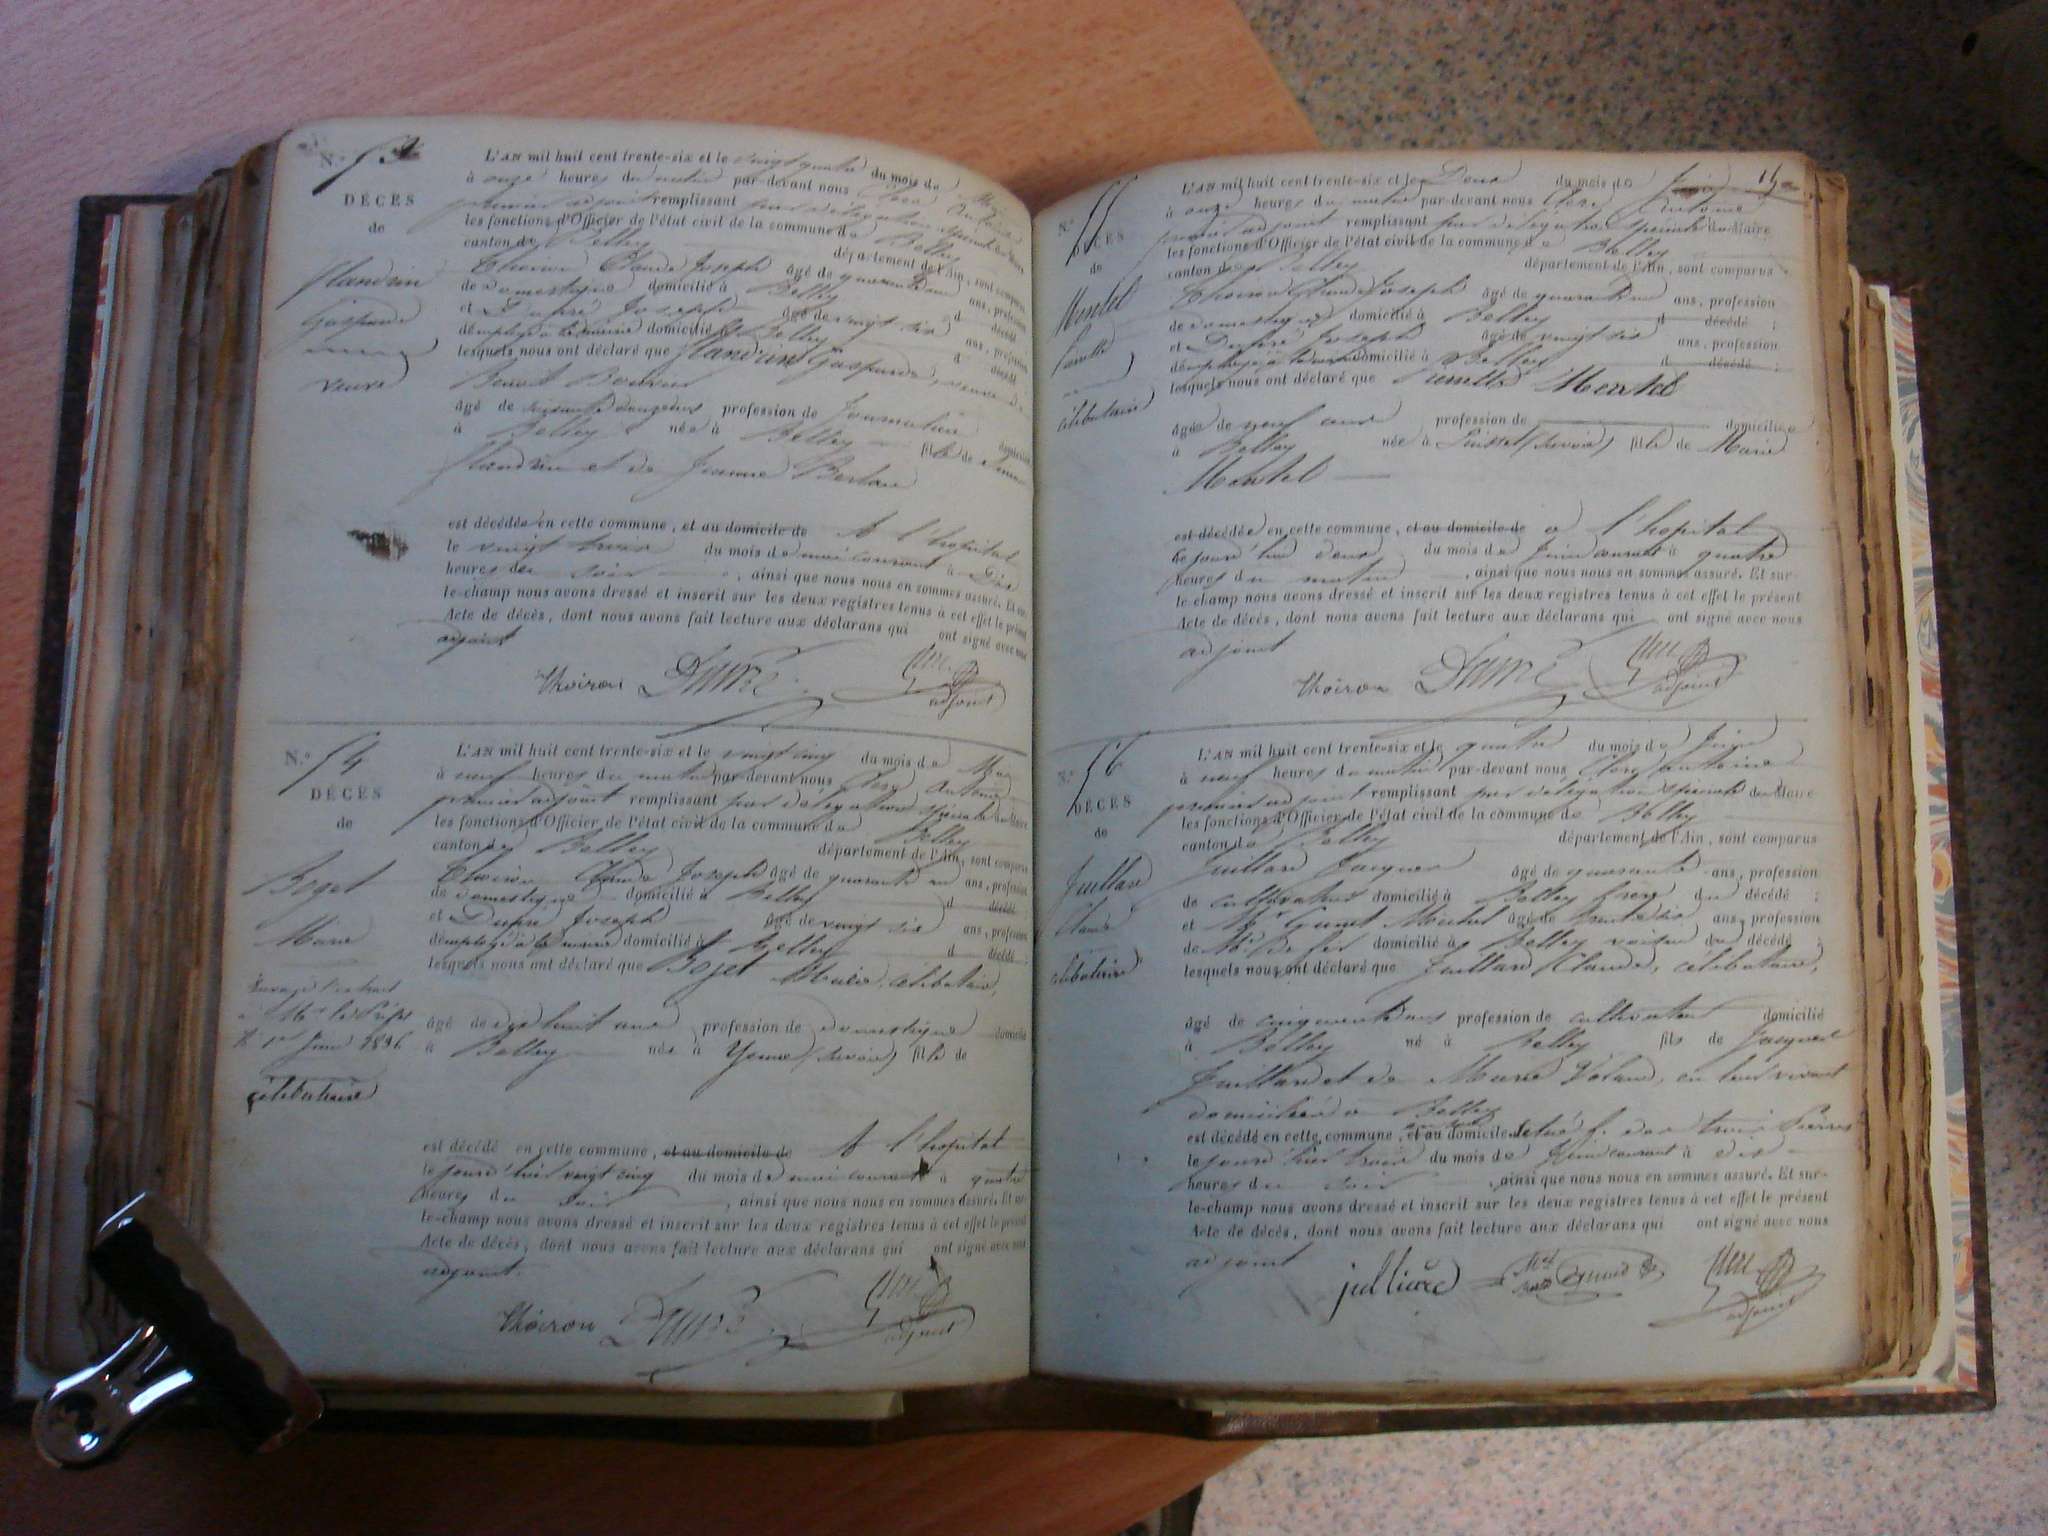 N.º 53
DÉCÈS
de
Flandrin
Gasparde
veuve
L'AN mil huit cent trente-six et le vingt quatre du mois de Mai
à onze heures du matin par-devant nous Clerc Antoine
premier adjoint remplissant par délégation spéciale du Maire
les fonctions d'Officier de l'état civil de la commune de Belley
canton de Belley département de l'Ain, sont comparus
Thoiron Claude Joseph âgé de quarante un ans, profession
de domestique domicilié à Belley d décédé
et Dupré Joseph âgé de vingt six ans, profession
d'employé à la mairie domicilié à Belley d décédé
lesquels nous ont déclaré que Flandrin Gasparde, veuve de
Benoit
âgé de soixante douze ans profession de Journalière domicilié
à Belley née à Belley fille de
Flandrin et de Jeanne
est décédée en cette commune, et au domicile de A l'hopital
le vingt trois du mois de mai courant à Dix
heures du soir, ainsi que nous nous en sommes assuré. Et sur-
le-champ nous avons dressé et inscrit sur les deux registres tenus à cet effet le présent
Acte de décès, dont nous avons fait lecture aux déclarans qui ont signé avec nous
adjoint
thoiron Dupré Clerc
adjoint
N.º 54
DÉCÈS
de
Bojet
Marie
Envoyé l'extrait
à Mr le Préfet
le 1er Juin 1836
célibataire
L'AN mil huit cent trente-six et le vingt cinq du mois de Mai
à neuf heures du matin par-devant nous Clerc Antoine
premier adjoint remplissant par délégation spéciale du Maire
les fonctions d'Officier de l'état civil de la commune de Belley
canton de Belley département de l'Ain, sont comparus
Thoiron Claude Joseph âgé de quarante un ans, profession
de domestique domicilié à Belley d décédé
et Dupré Joseph âgé de vingt six ans, profession
d'employé à la mairie domicilié à Belley d décédé
lesquels nous ont déclaré que Bojet Marie, célibataire,
âgé de dix huit ans profession de domestique domicilié
à Belley née à Yenne (Savoie) fille de
est décédé en cette commune, et au domicile de A l'hopital
le jourd'hui vingt cinq du mois de mai courant à quatre
heures du soir, ainsi que nous nous en sommes assuré. Et sur-
le-champ nous avons dressé et inscrit sur les deux registres tenus à cet effet le présent
Acte de décès, dont nous avons fait lecture aux déclarans qui ont signé avec nous
adjoint.
thoiron Dupré Clerc
adjoint
N.º 55
DÉCÈS
de
Montel
célibataire
L'AN mil huit cent trente-six et le Deux du mois de Juin
à onze heures du matin par-devant nous Clerc Antoine
premier adjoint remplissant par délégation spéciale du Maire
les fonctions d'Officier de l'état civil de la commune de Belley
canton de Belley département de l'Ain, sont comparus
Thoiron Claude Joseph âgé de quarante un ans, profession
de domestique domicilié à Belley d décédé ;
et Dupré Joseph âgé de vingt six ans, profession
d'employé à la mairie domicilié à Belley d décédé ;
lesquels nous ont déclaré que Montel
âgée de neuf ans profession de domiciliée
à Belley née à (Savoie) fille de Marie
Montel
est décédée en cette commune, et au domicile de a l'hopital
le jourd'hui deux du mois de Juin courant à quatre
heures du matin, ainsi que nous nous en sommes assuré. Et sur-
le-champ nous avons dressé et inscrit sur les deux registres tenus à cet effet le présent
Acte de décès, dont nous avons fait lecture aux déclarans qui ont signé avec nous
adjoint
thoiron Dupré Clerc
adjoint
N.º 56
DÉCÈS
de
Juillard
Claude
célibataire
L'AN mil huit cent trente-six et le quatre du mois de Juin
à neuf heures du matin par-devant nous Clerc Antoine
premier adjoint remplissant par délégation spéciale du Maire
les fonctions d'Officier de l'état civil de la commune de Belley
canton de Belley département de l'Ain, sont comparus
Juillard Jacques âgé de quarante ans, profession
de cultivateur domicilié à Belley frère du décédé ;
et Michel âgé de trente six ans, profession
de Md de fer domicilié à Belley voisin du décédé ;
lesquels nous ont déclaré que Juillard Claude, célibataire,
âgé de cinquante ans profession de cultivateur domicilié
à Belley né à Belley fils de Jacques
Juillard et de Marie en leur vivant
domiciliés à Belley
est décédé en cette commune, et au domicile situé f. des trois Pierres
le jourd'hier trois du mois de Juin courant à dix
heures du soir, ainsi que nous nous en sommes assuré. Et sur-
le-champ nous avons dressé et inscrit sur les deux registres tenus à cet effet le présent
Acte de décès, dont nous avons fait lecture aux déclarans qui ont signé avec nous
adjoint
Clerc
adjoint